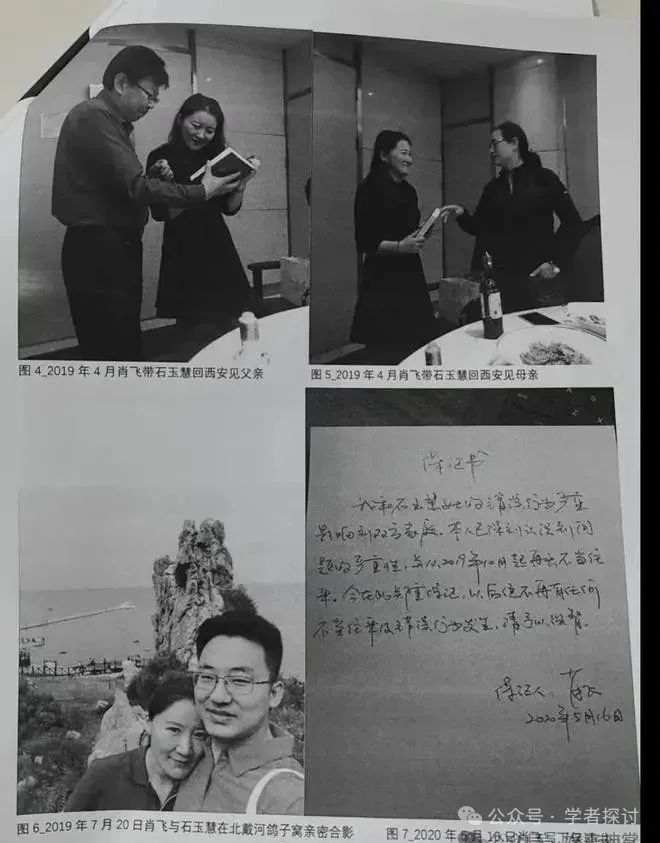 图 4_2019 年 4 月肖飞带石玉慧回西安见父亲
图 5_2019 年 4 月肖飞带石玉慧回西安见母亲
保证书
我和石玉慧女士的错误行为严重
影响到双方家庭。本人已深刻认识到问
题的严重性,并从2019年10月起再无不当往
来。今在此郑重保证,以后绝不再有任何
不当往来及错误行为发生,请予以监督。
保证人:肖飞
2020年5月16日
图 6_2019 年 7 月 20 日肖飞与石玉慧在北戴河鸽子窝亲密合影
图 7_2020 年 5 月 16 日肖飞写下保证书
公众号 · 学者探讨